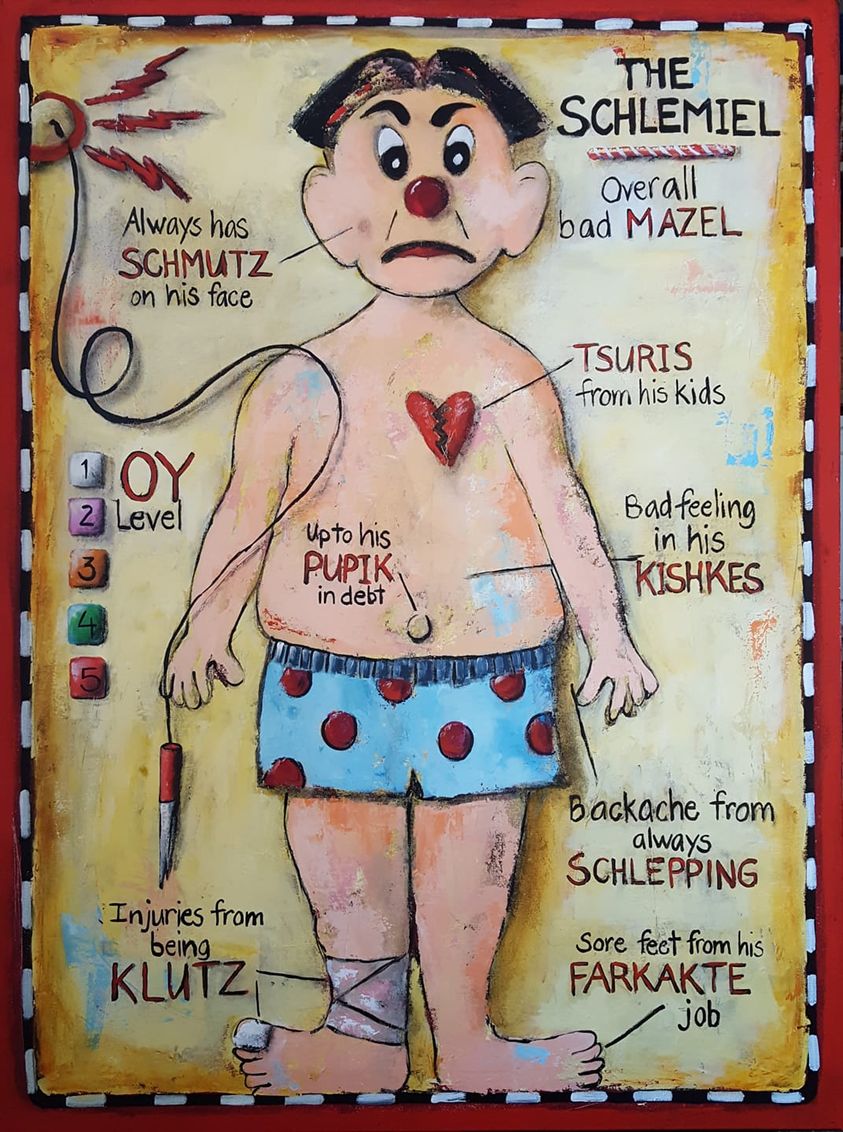 THE
SCHLEMIEL
Overall
bad MAZEL
Always has
SCHMUTZ
on his face
TSURIS
from his kids
1
2
3
4
5
OY
Level
Up to his
PUPIK
in debt
Bad feeling
in his
KISHKES
Backache from
always
SCHLEPPING
Injuries from
being
KLUTZ
Sore feet from his
FARKAKTE
job